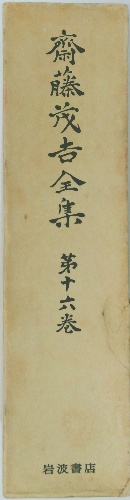 齋藤茂吉全集
第十六巻
岩波書店